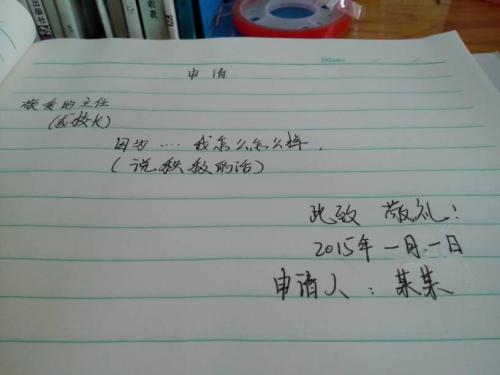 申请
敬爱的主任
(或校长)
因为····我怎么怎么样.
(说积极的话)
此致 敬礼!
2015年一月一日
申请人:某某